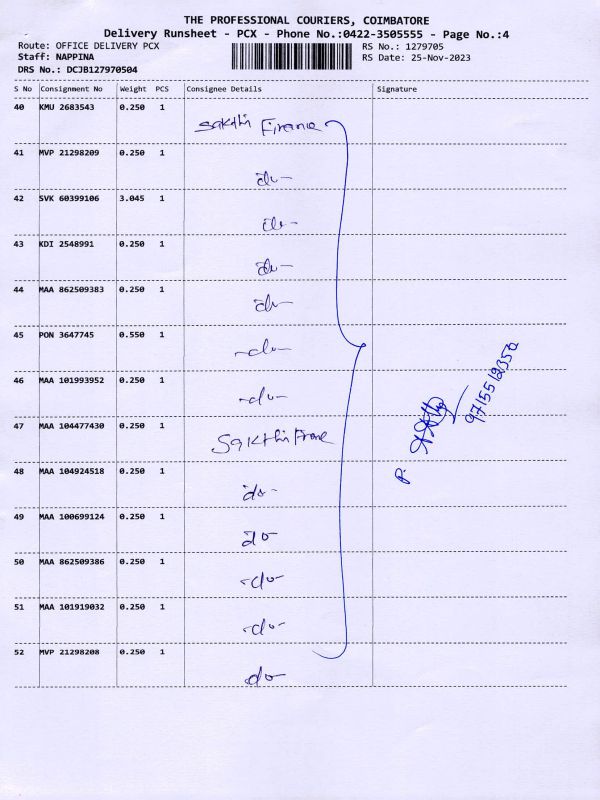 THE PROFESSIONAL COURIERS, COIMBATORE
Delivery Runsheet - PCX - Phone No.:0422-3505555 - Page No.:4
Route: OFFICE DELIVERY PCX RS No.: 1279705
Staff: NAPPINA RS Date: 25-Nov-2023
DRS No.: DCJB127970504
S No Consignment No Weight PCS Consignee Details Signature
40 KMU 2683543 0.250 1
Sakthi Finance
41 MVP 21298209 0.250 1
do-
42 SVK 60399106 3.045 1
do-
43 KDI 2548991 0.250 1
do-
44 MAA 862509383 0.250 1
do-
45 PON 3647745 0.550 1
-do-
46 MAA 101993952 0.250 1
-do-
47 MAA 104477430 0.250 1
Sakthi
48 MAA 104924518 0.250 1
do-
49 MAA 100699124 0.250 1
do
50 MAA 862509386 0.250 1
-do-
51 MAA 101919032 0.250 1
-do-
52 MVP 21298208 0.250 1
do-